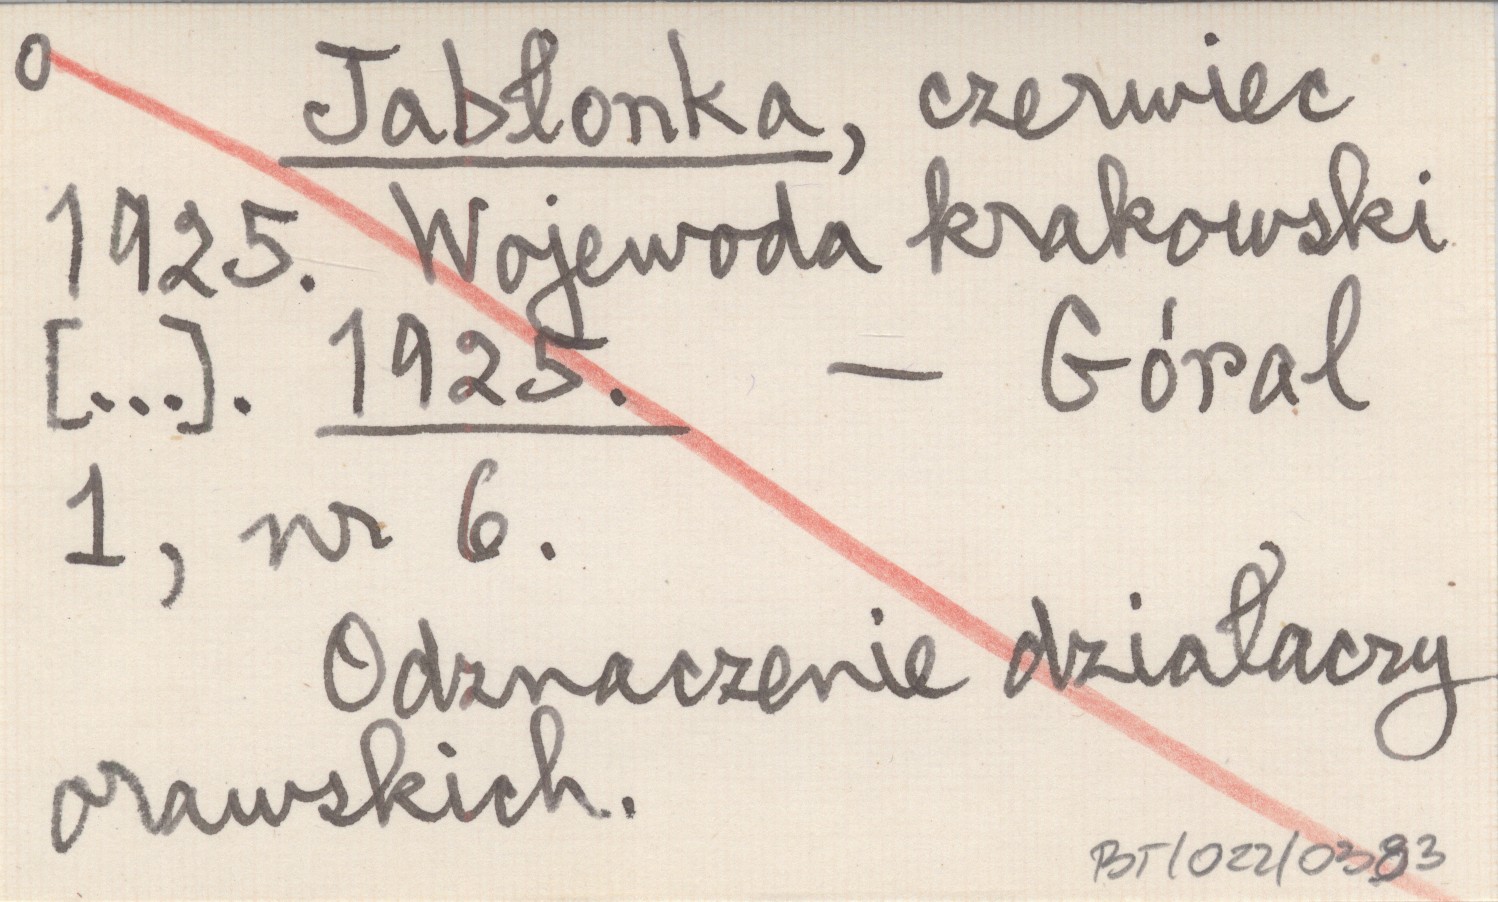 o Jabłonka, czerwiec
1925. Wojewoda krakowski
[...]. 1925. — Góral
1, nr 6.
Odznaczenie działaczy
orawskich.
BT/022/0383